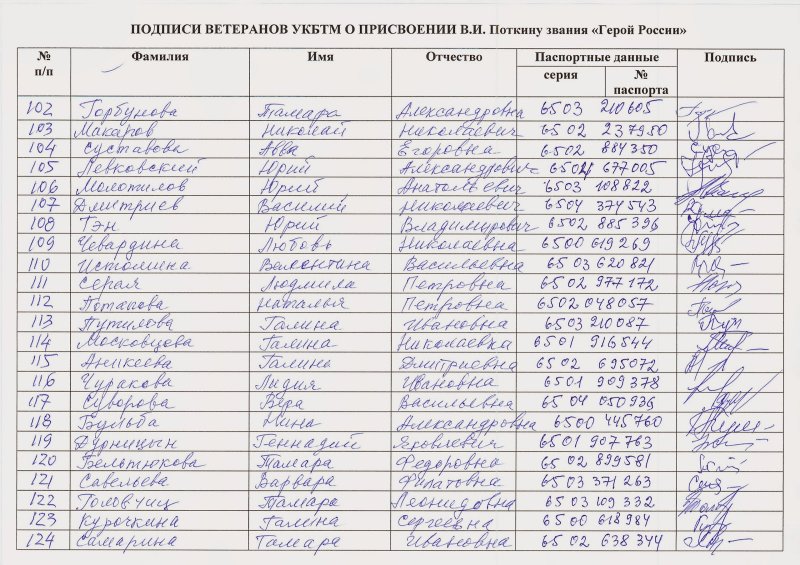 ПОДПИСИ ВЕТЕРАНОВ УКБТМ О ПРИСВОЕНИИ В.И. Поткину звания «Герой России»
№ п/п Фамилия Имя Отчество Паспортные данные Подпись
серия № паспорта
102 Горбунова Тамара Александровна 6503 210605
103 Макаров Николай Николаевич 6502 237950
104 Суставова Авва Егоровна 6502 884350
105 Левковский Юрий Александрович 6504 677005
106 Молотилов Юрий Анатольевич 6503 108822
107 Дмитриев Василий Николаевич 6504 374543
108 Тэн Юрий Владимирович 6502 885396
109 Чевардина Любовь Николаевна 6500 619269
110 Истомина Валентина Васильевна 6503 620821
111 Серая Людмила Петровна 6502 977172
112 Потапова Наталья Петровна 6502 048057
113 Путилова Галина Ивановна 6503 210087
114 Московцова Галина Николаевна 6501 916544
115 Аникеева Галина Дмитриевна 6502 695072
116 Чуракова Лидия Ивановна 6501 909378
117 Суворова Вера Васильевна 6504 050936
118 Бульба Нина Александровна 6500 445760
119 Дурницын Геннадий Яковлевич 6501 907763
120 Бельтюкова Тамара Федоровна 6502 899581
121 Савельева Варвара Филатовна 6503 371263
122 Головчиц Тамара Леонидовна 6503 109332
123 Курочкина Галина Сергеевна 6500 618984
124 Самарина Тамара Ивановна 6502 638344